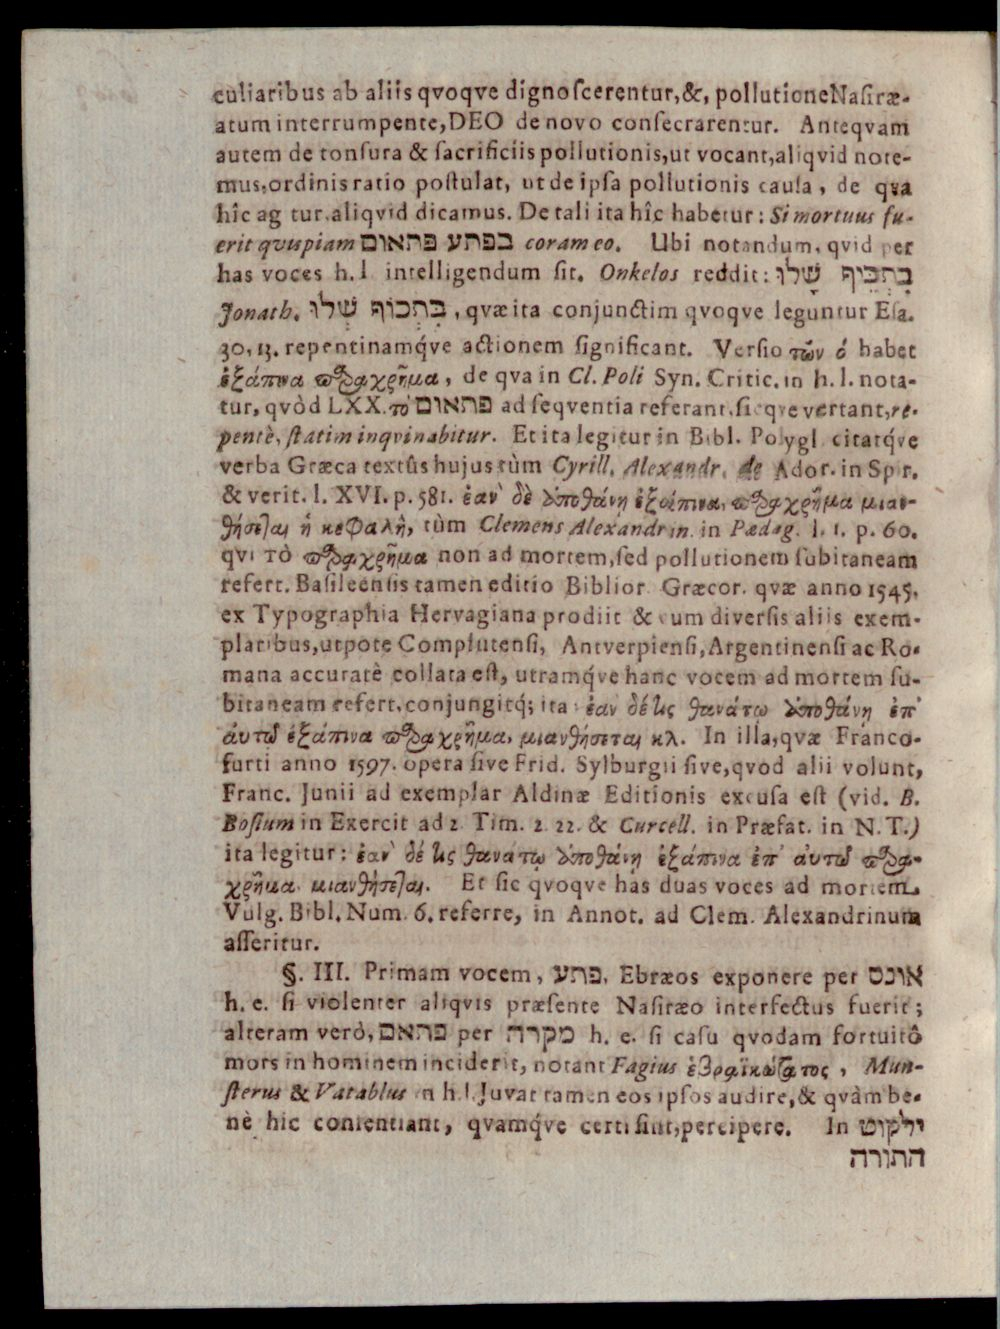 culiaribus ab aliis qvoqve dignoſcerentur,&, pollutioneNaſiræ-
atum interrumpente,DEO de novo conſecrarentur. Anteqvam
autem de tonſura & ſacrificiis pollutionis,ut vocant,aliqvid note-
mus,ordinis ratio poſtulat, ut de ipſa pollutionis cauſa, de qva
hîc ag tur aliqvid dicamus. De tali ita hîc habetur: Si mortuus fu-
erit qvuspiam בפתע פתאום coram eo. Ubi notandum, qvid per
has voces h. l intelligendum ſit. Onkelos reddit: בִּתְכֵּיף שָׁלוּ
Jonath. בִּתְכוֹף שְׁלוּ, qvæ ita conjunctim qvoqve leguntur Eſa.
30, 13. repentinamq́ve actionem ſignificant. Verſio τῶν ό habet
ἐξάπινα παραχρῆμα, de qva in Cl. Poli Syn. Critic. in h. l. nota-
tur, qvòd LXX. τὸ פתאום ad ſeqventia referant, ſicqve vertant, re-
pentè, ſtatim inqvinabitur. Et ita legitur in Bibl. Polygl citatq́ve
verba Græca textûs hujus tùm Cyrill. Alexandr. de Ador. in Spir.
& verit. l. XVI. p. 581. ἐαν δὲ ἀποθάνῃ ἐξάπινα, παραχρῆμα μιαν-
θήσεται ἡ κεφαλὴ, tùm Clemens Alexandrin. in Pædag. l. 1. p. 60.
qvi τὸ παραχρῆμα non ad mortem,ſed pollutionem ſubitaneam
refert. Baſileenſis tamen editio Biblior Græcor. qvæ anno 1545.
ex Typographia Hervagiana prodiit & cum diverſis aliis exem-
plaribus,utpote Complutenſi, Antverpienſi,Argentinenſi ac Ro-
mana accuratè collata eſt, utramq́ve hanc vocem ad mortem ſu-
bitaneam refert, conjungitq́; ita: ἐαν δέ τις θανάτῳ ἀποθάνῃ ἐπ'
ἀυτῷ ἐξάπινα παραχρῆμα, μιανθήσεται κλ. In illa,qvæ Franco-
furti anno 1597. opera ſive Frid. Sylburgii ſive,qvod alii volunt,
Franc. Junii ad exemplar Aldinæ Editionis excuſa eſt (vid. B.
Boſium in Exercit ad 2 Tim. 2 22. & Curcell. in Præfat. in N. T.)
ita legitur: ἐαν δέ τις θανάτῳ ἀποθάνῃ ἐξάπινα ἐπ' ἀυτῷ παρα-
χρῆμα μιανθήσεται. Et ſic qvoqve has duas voces ad mortem.
Vulg. Bibl. Num. 6. referre, in Annot. ad Clem. Alexandrinum
aſſeritur.
§. III. Primam vocem, פתע, Ebræos exponere per אונס
h. e. ſi violenter aliqvis præſente Naſiræo interfectus fuerit;
alteram verò, פתאם per מקרה h. e. ſi caſu qvodam fortuitô
mors in hominem inciderit, notant Fagius ἑβραϊκώτατος, Mun-
ſterus & Vatablus in h. l. Juvat tamen eos ipſos audire, & qvàm be-
nè hic conſentiant, qvamq́ve certi ſint, percipere. In ילקוט
התורה